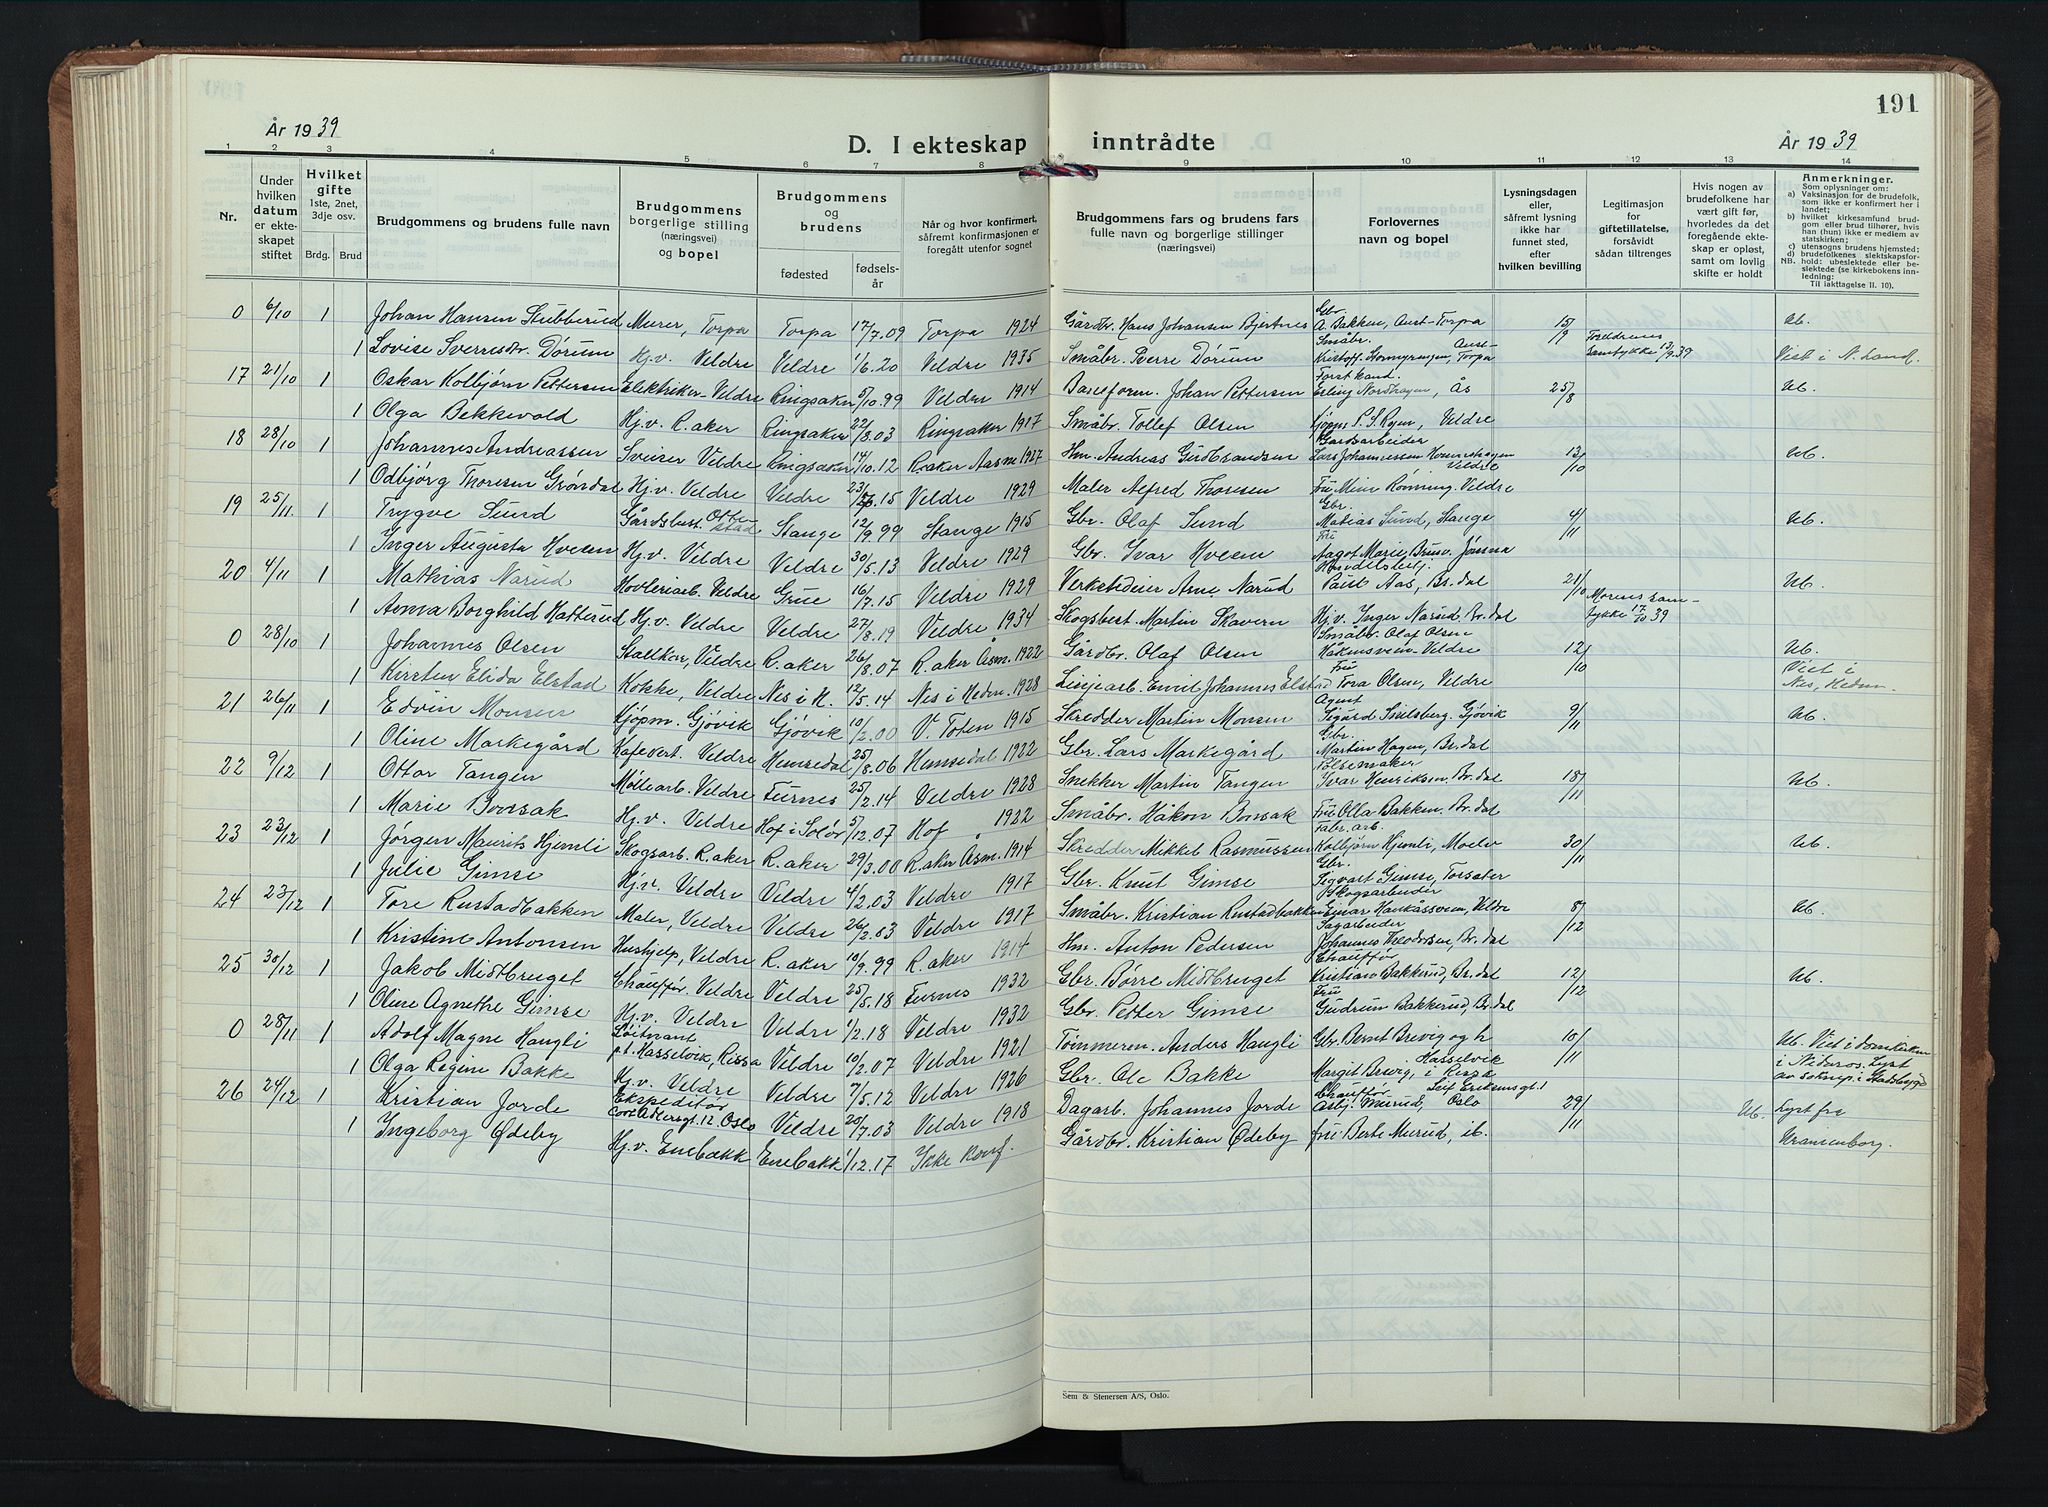 191
År 1939
D. I ekteskap inntrådte
År 1939
1 2 3 4 5 6 7 8 9 10 11 12 13 14
Nr.
Under hvilken datum er ekteskapet stiftet
Hvilket gifte 1ste, 2net, 3dje osv.
Brdg. Brud
Brudgommens og brudens fulle navn
Brudgommens borgerlige stilling (næringsvei) og bopel
Brudgommens og brudens
fødested
fødselsår
Når og hvor konfirmert, såfremt konfirmasjonen er foregått utenfor sognet
Brudgommens fars og brudens fars fulle navn og borgerlige stillinger (næringsvei)
Forlovernes navn og bopel
Lysningsdagen eller, såfremt lysning ikke har funnet sted, efter hvilken bevilling
Legitimasjon for giftetillatelse, forsåvidt sådan tiltrenges
Hvis nogen av brudefolkene har vært gift før, hvorledes da det foregående ekteskap er opløst, samt om lovlig skifte er holdt
Anmerkninger.
Som oplysninger om:
a) Vaksinasjon for de brudefolk, som ikke er konfirmert her i landet;
b) hvilket kirkesamfund brudgom eller brud tilhører, hvis han (hun) ikke er medlem av statskirken;
c) utensogns brudens hjemsted;
d) brudefolkenes slektskapsforhold: ubeslektede eller beslektede (se kirkebokens innledning:
NB.
Til iakttagelse II. 10).
0 6/10 1 Johan Hansen Stubberud Murer, Torpa Torpa 17/7.09 Torpa 1924 Gårdbr. Hans Johansen Bjertnes Gbr. A. Bakken, Aust-Torpa 15/9 Foreldrenes samtykke 13/9.39 Ub.
1 Lovise Sverresdr. Dørum Hj.v. Veldre Veldre 1/6.20 Veldre 1935 Småbr. Sverre Dørum Småbr. Kristoff. Stormyrengen, Aust-Torpa Viet i N. Land.
17 21/10 1 Oskar Kolbjørn Pettersen Elektriker Veldre Ringsaker 5/10.99 Veldre 1914 Baseform. Johan Pettersen Forstkand. Erling Nordhagen, Ås 25/8 Ub.
1 Olga Bekkevold Hj.v. R.aker Ringsaker 22/8.03 Ringsaker 1917 Småbr. Tollef Olsen Kjøpm. P. S. Røjen, Veldre
18 28/10 1 Johannes Andreassen Sveiser Veldre Ringsaker 14/10.12 R.aker Aasm. 1927 Hm. Andreas Gudbrandsen Gardsarbeider Lars Johannessen Veldre 13/10 Ub.
1 Odbjørg Thoresen Grøndal Hj.v. Veldre Veldre 23/ .15 Veldre 1929 Maler Alfred Thoresen Fru Mim Rønning, Veldre
19 25/11 1 Trygve Sund Gårdsbest. Ottestad Stange 12/9.99 Stange 1915 Gbr. Olaf Sund Gbr. Matias Sund, Stange 4/11 Ub.
1 Inger Augusta Hveem Hj.v. Veldre Veldre 30/5.13 Veldre 1929 Gbr. Ivar Hveem Fru Aagot Marie Brusv. Jømna
20 4/11 1 Mathias Narud Høvleriarb. Veldre Grue 16/7.15 Veldre 1929 Verkstedeier Arne Narud Handelsbestj. Paul Aas, Br.dal 21/10 Morens samtykke 17/10 39 Ub.
1 Anna Borghild Hatterud Hj.v. Veldre Veldre 27/8.19 Veldre 1934 Skogsbest. Martin Skavern Hj.v. Inger Narud, Br.dal
0 28/10 1 Johannes Olsen Stallkar, Veldre R.aker 26/8.07 R.aker Åsm. 1922 Gårdbr. Olaf Olsen Småbr. Olaf Olsen Håkensveen Veldre 12/10 Ub.
1 Kirsten Elida Elstad Kokke, Veldre Nes i H. 12/5.14 Nes i Hedm. 1928 Linjearb. Emil Johannes Elstad Fru Tora Olsen, Veldre Viet i Nes, Hedm.
21 26/11 1 Edvin Monsen Kjøpm. Gjøvik Gjøvik 10/2.00 V. Toten 1915 Skredder Martin Monsen Agent Sigurd Siselsberg, Gjøvik 9/11 Ub.
1 Oline Markegård Kafevert. Veldre Hemsedal 25/8.06 Hemsedal 1922 Gbr. Lars Markegård Gbr. Martin Hagen, Br.dal
22 9/12 1 Ottar Tangen Møllearb. Veldre Furnes 25/2.14 Veldre 1928 Snekker Martin Tangen Pølsemaker Ivar Henriksen, Br.dal 18/11 Ub.
1 Marie Bonsak Hj.v. Veldre Hof i Solør 5/12.07 Hof 1922 Småbr. Håkon Bonsak Fru Olla Bakken, Br.dal
23 23/12 1 Jørgen Maurits Hjemli Skogsarb. R.aker R.aker 29/3.00 R.aker Åsm. 1914 Skredder Mikkel Rasmussen Fabr.arb. Kolbjørn Hjemli, Moelv 30/11 Ub.
1 Julie Gimse Hj.v. Veldre Veldre 4/2.03 Veldre 1917 Gbr. Knut Gimse Gbr. Sigvart Gimse, Torsæter
24 23/12 1 Tore Rustadbakken Maler, Veldre Veldre 26/2.03 Veldre 1917 Småbr. Kristian Rustadbakken Skogsarbeider Einar Haukåssveen, Veldre 8/12 Ub.
1 Kristine Antonsen Hushjelp, Veldre R.aker 10/9.99 R.aker 1914 Hm. Anton Pedersen Sagarbeider Johannes Theodorsen, Br.dal
25 30/12 1 Jakob Midtbruget Chauffør. Veldre Veldre 25/5.18 Furnes 1932 Gbr. Børre Midtbruget Chauffør Kristian Bakkerud, Br.dal 12/12 Ub.
1 Oline Agnethe Gimse Hj.v. Veldre Veldre 1/2.18 Veldre 1932 Gbr. Petter Gimse Fru Gudrun Bakkerud, Br.dal
0 28/11 1 Adolf Magne Haugli Løitnant p.t. Hasselvik, Rissa Veldre 10/2.07 Veldre 1921 Tømmerm. Anders Haugli Gbr. Bernt Brevig og h 10/11 Ub. Viet i Domkirken i Nidaros. Lyst av sokнepr. i Stadsbygd
1 Olga Regine Bakke Hj.v. Veldre Veldre 7/5.12 Veldre 1926 Gbr. Ole Bakke Margit Brevig, Hasselvik i Rissa
26 24/12 1 Kristian Jorde Ekspeditør Cort Adlersgt. 12. Oslo Veldre 20/7.03 Veldre 1918 Dagarb. Johannes Jorde Chauffør Asbj. Murud, Leif Eriksensgt. 1 Oslo 29/11 Ub. Lyst fra Uranienborg.
1 Ingeborg Ødeby Hj.v. Enebakk Enebakk 1/12.17 Ikke konf. Gårdbr. Kristian Ødeby fru Berte Murud, ib.
Sem & Stenersen A/S, Oslo.